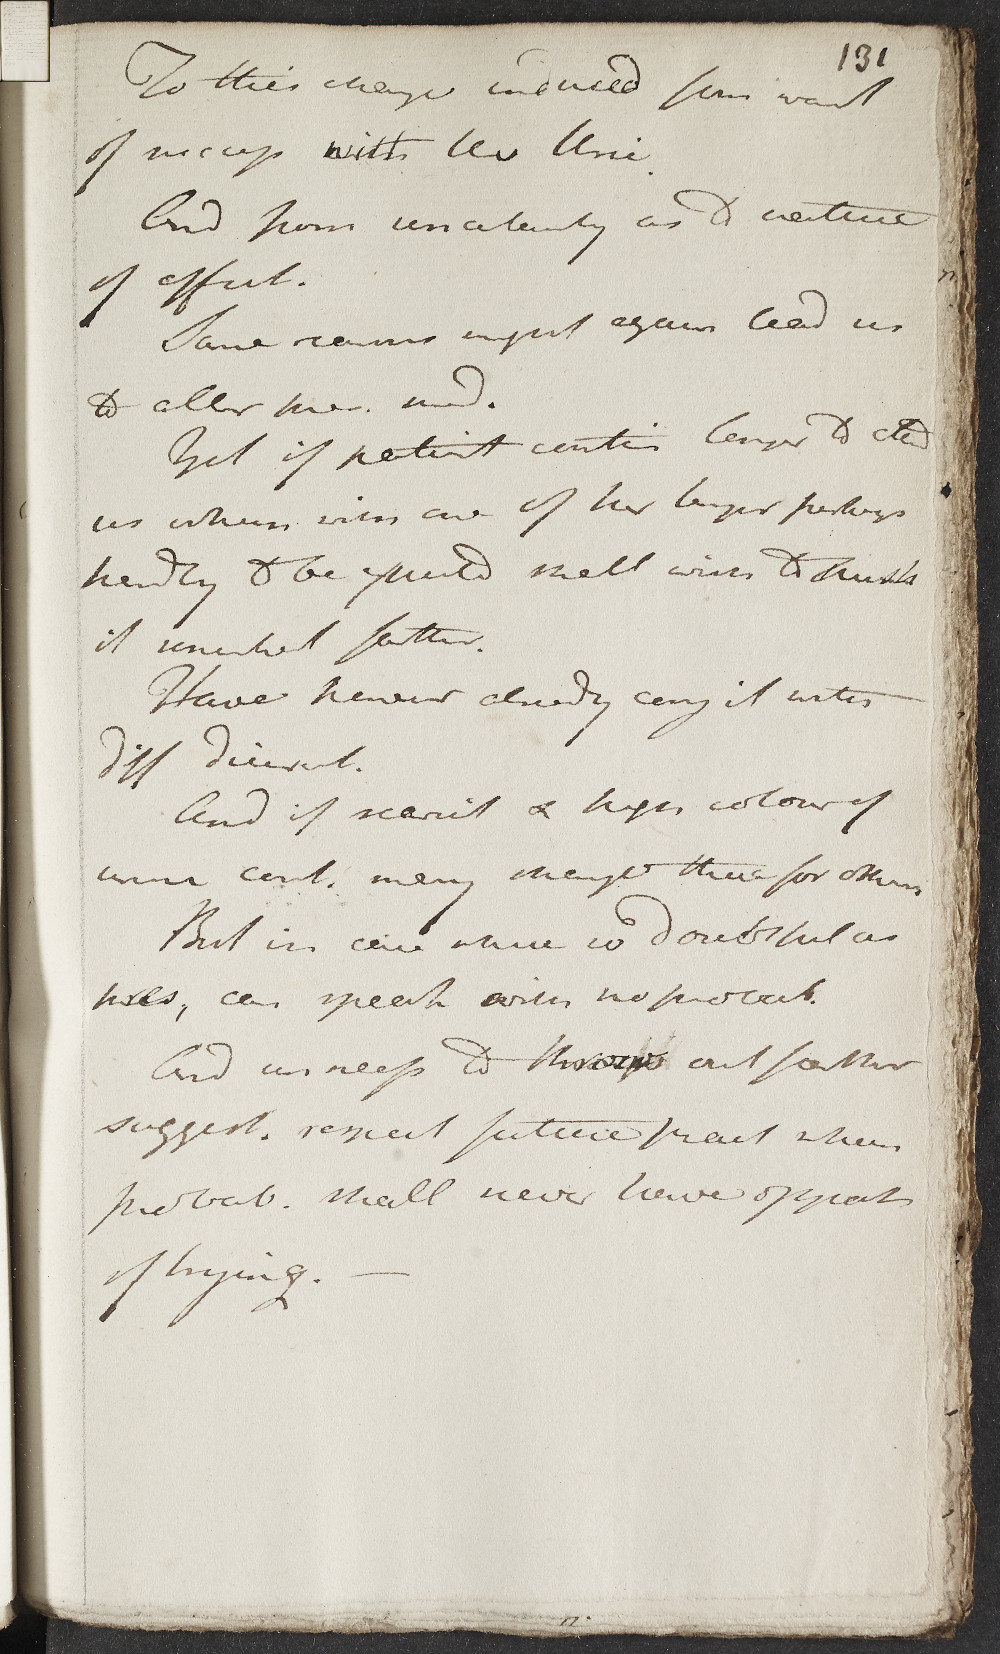 131
To this change induced from want
of success with Uva Ursi.
And from uncertainty as to nature
of effect.
Same reasons might again lead us
to alter pres. med.
Yet if patient contin longer to attend
us whm with one of her
hardly to be expected shall wish to push
it somewhat farther.
Have however already carry it into
diff diseases.
And if scarcit & high colour of
urine cont. may change this for others
But in case where so doubtful as
this, can speak with no probab.
And unnecess to throw out farther
suggest. respect future pract when
probab. shall never have opport
of trying. —